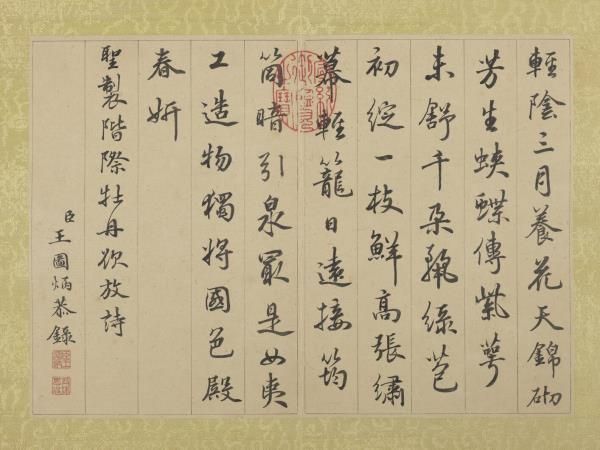 輕陰三月養花天錦砌
芳生蛺蝶傳紫萼
未舒千朶艷綠苞
初綻一枝鮮高張繡
幕輕籠日遠接筠
筒暗引泉最是女夷
工造物獨將國色殿
春妍
聖製階際牡丹欲放詩
臣王圖炳恭錄